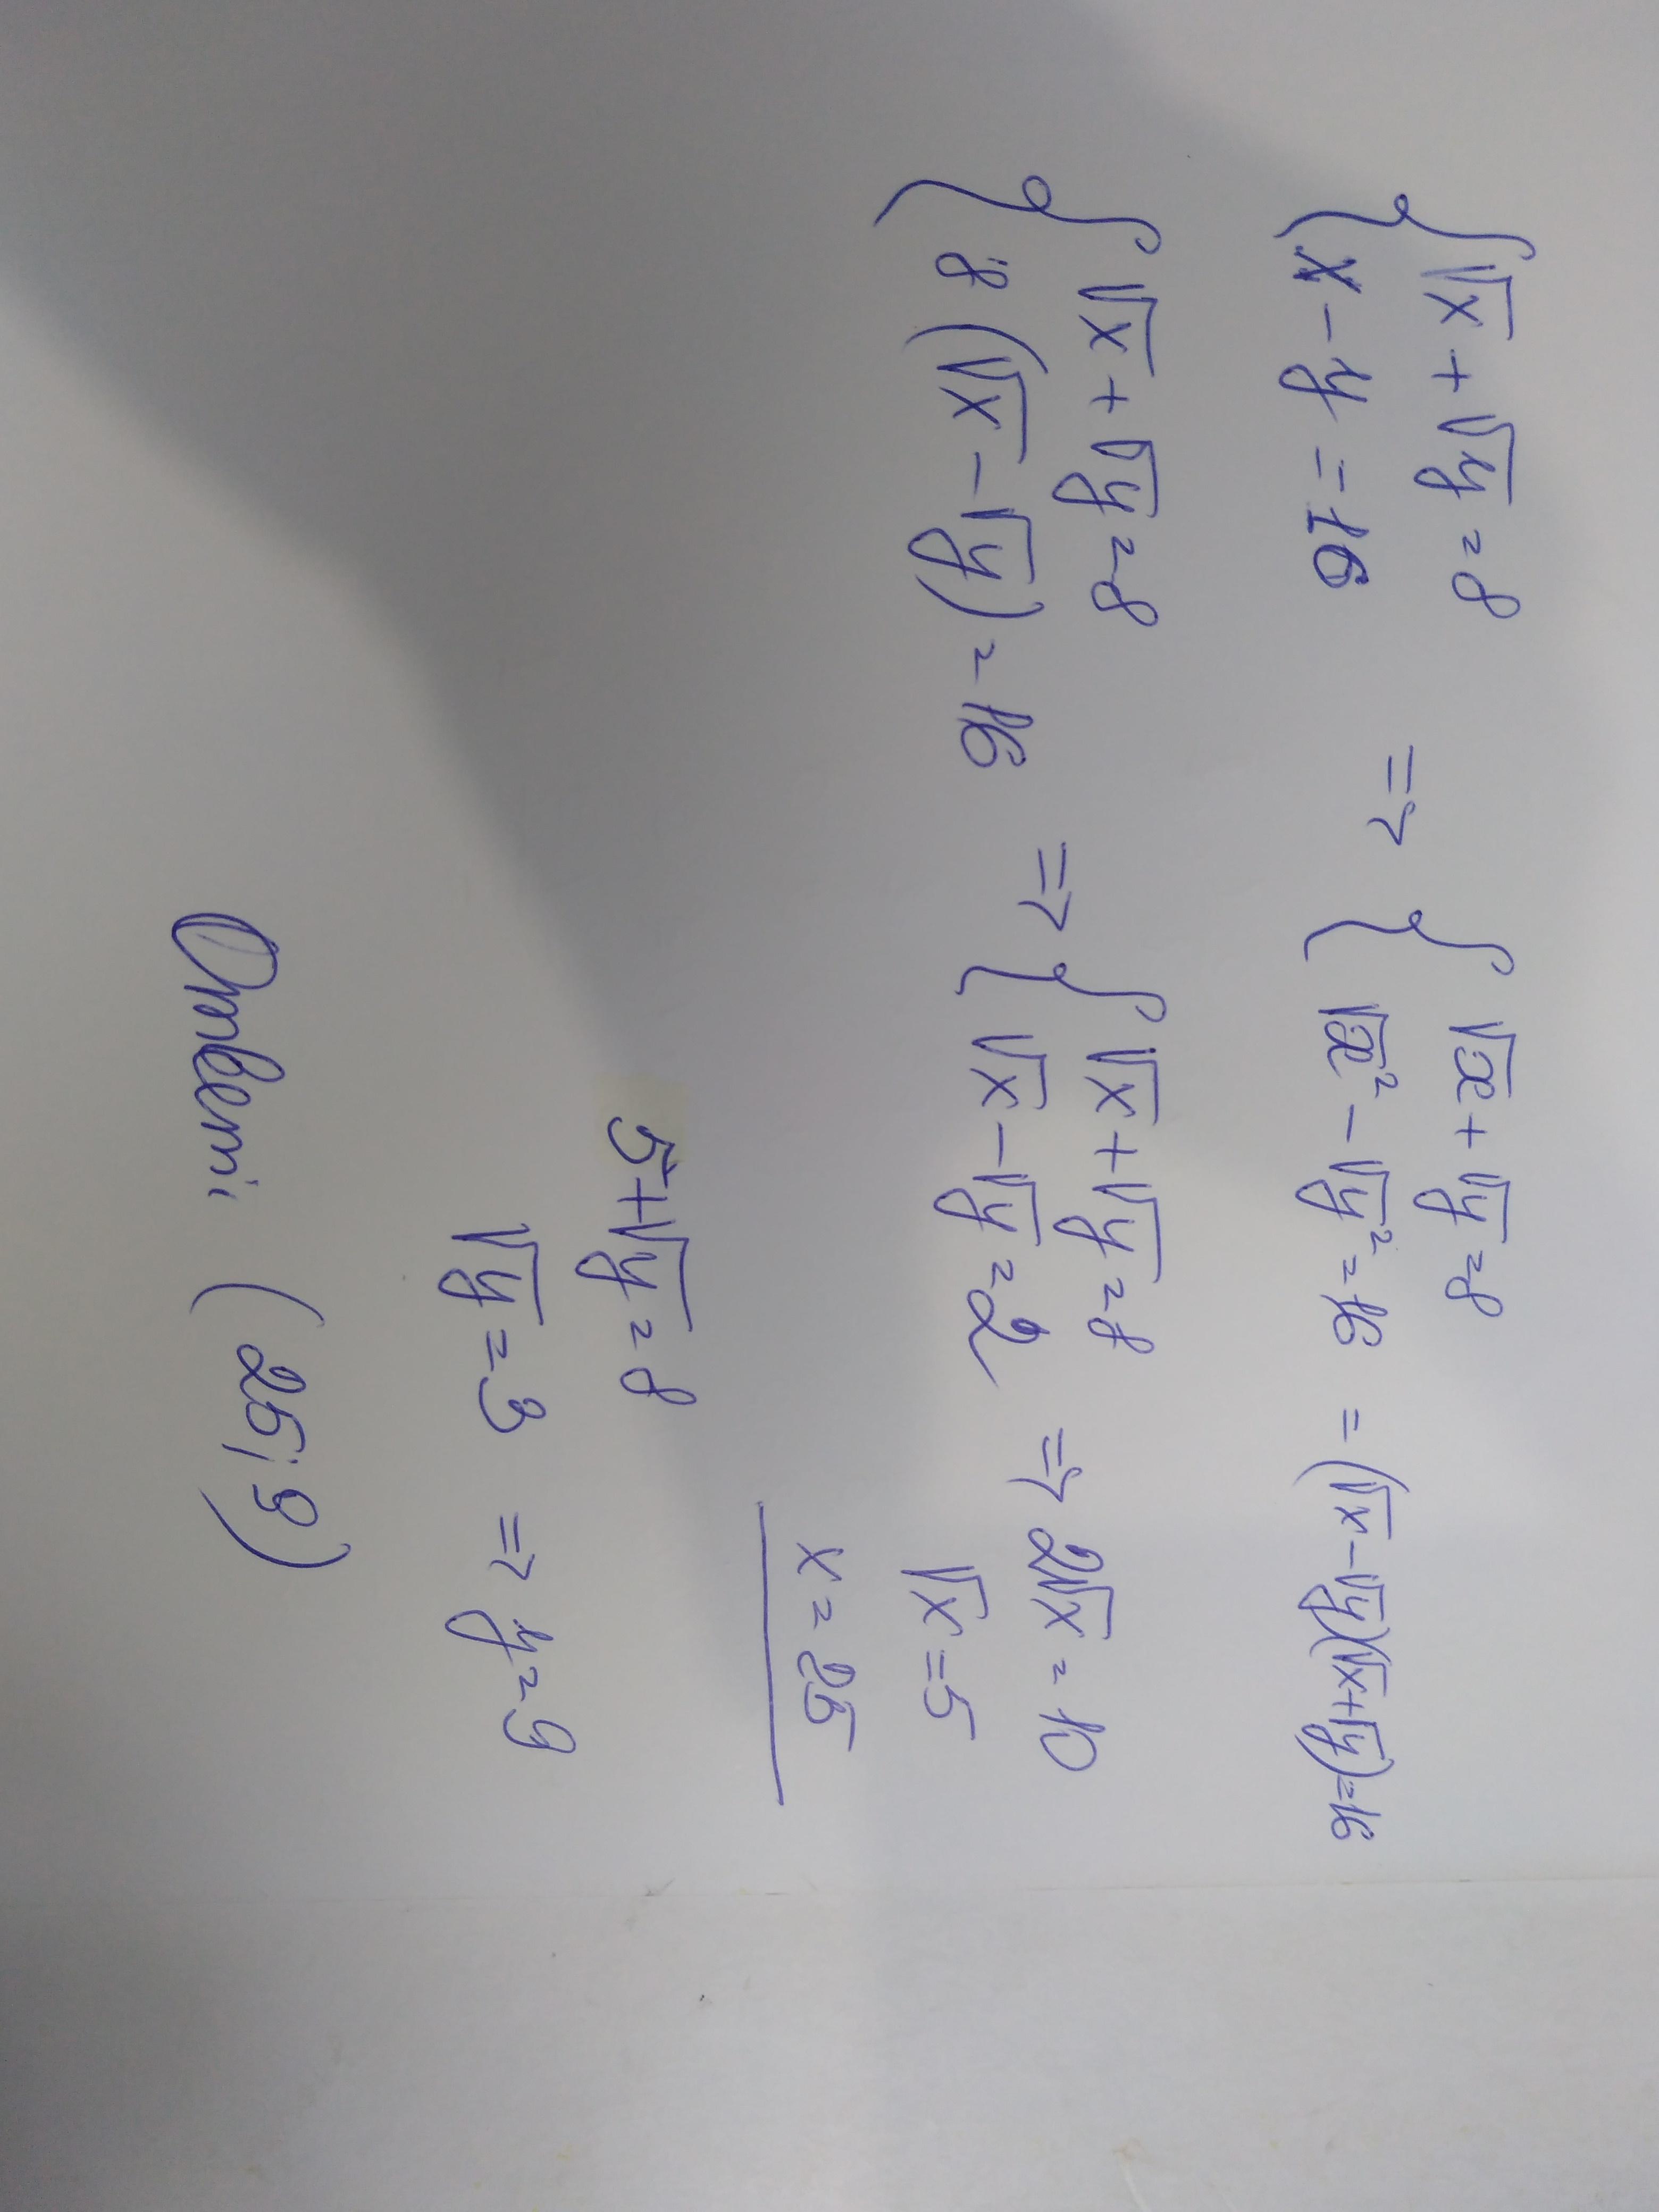 { √x + √y = 8
x - y = 16 => { √x + √y = 8
√x² - √y² = 16 = (√x - √y)(√x + √y) = 16
{ √x + √y = 8
8 (√x - √y) = 16 => { √x + √y = 8
√x - √y = 2 => 2√x = 10
√x = 5
x = 25
5 + √y = 8
√y = 3 => y = 9
Ответ: (25; 9)